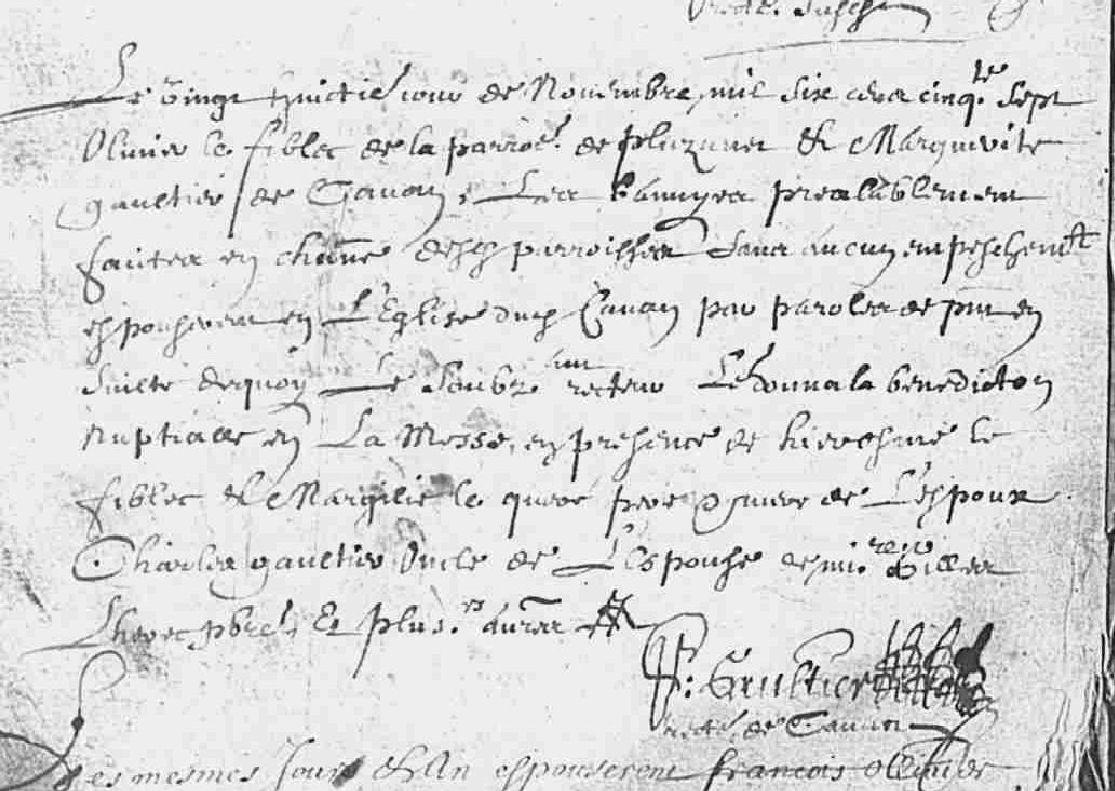 Le vingt huictié jour de Novembre mil six cens cinq.te sept
Olivier le fiblec de la parroe. de pluzunet & Marguerite
gaultier de Cavan, Les bannyes prealablement
faites en chune desd parroisses sans aucun empeschemt
espouserent en L'Eglise dud Cavan par paroles de pnt en
suitte dequoy Le soubz recteur Leur donna la benediction
nuptialle en La Messe, en presence de hierosme le
fiblec & Margilie le quere pere & mere de L'espoux
Charles gaultier oncle de L'espouse de mi.re Gilles
pbre, Et plus.rs aures
F: Gaultier
rectr. de Cavan
Les mesmes Jour & An espouserent francois